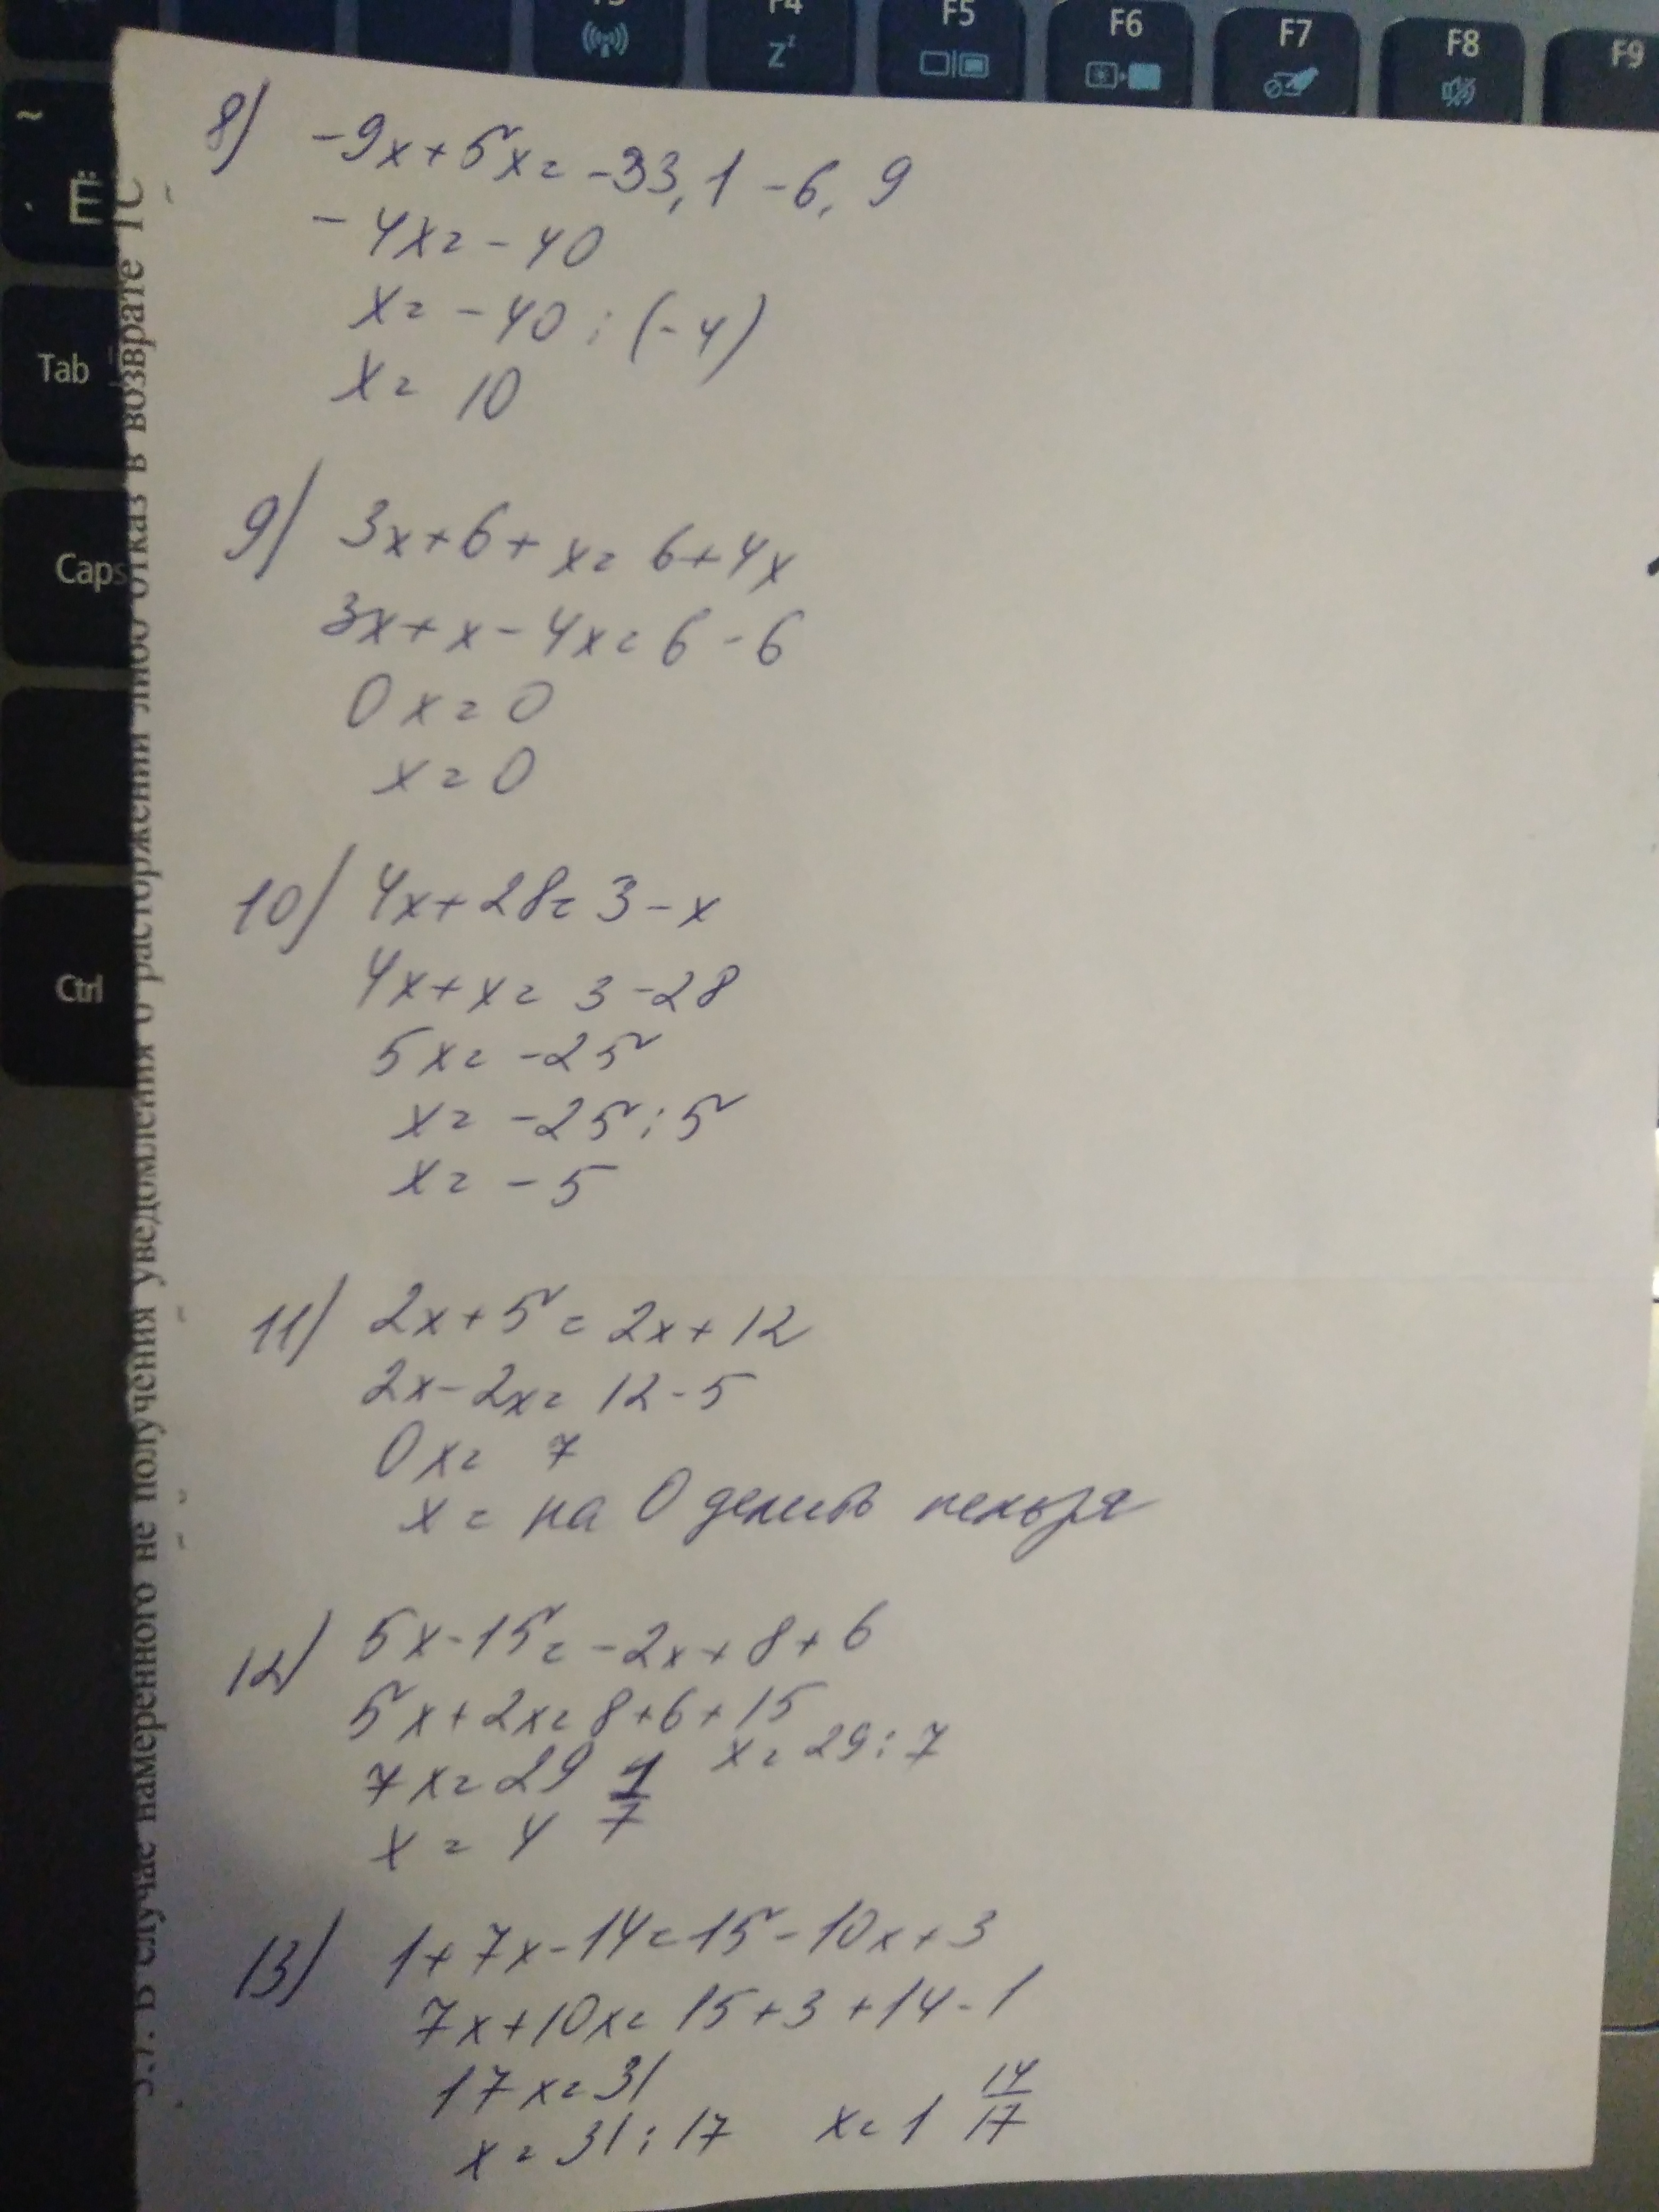 F4
F5
F6
F7
F8
F9
Z
~
Ё
Tab
Caps
Ctrl
8) -9x+5x= -33,1 -6,9
-4x= -40
x= -40 : (-4)
x= 10
9) 3x+6+x= 6+4x
3x+x-4x= 6-6
0x= 0
x= 0
10) 4x+28= 3-x
4x+x= 3-28
5x= -25
x= -25 : 5
x= -5
11) 2x+5= 2x+12
2x-2x= 12-5
0x= 7
x= на 0 делить нельзя
12) 5x-15= -2x+8+6
5x+2x= 8+6+15
7x= 29 x= 29:7
x= 4 1/7
13) 1+7x-14=15-10x+3
7x+10x= 15+3+14-1
17x= 31
x= 31:17 x= 1 14/17
В случае намеренного не получения уведомления о расторжении либо отказ в возврате ТС